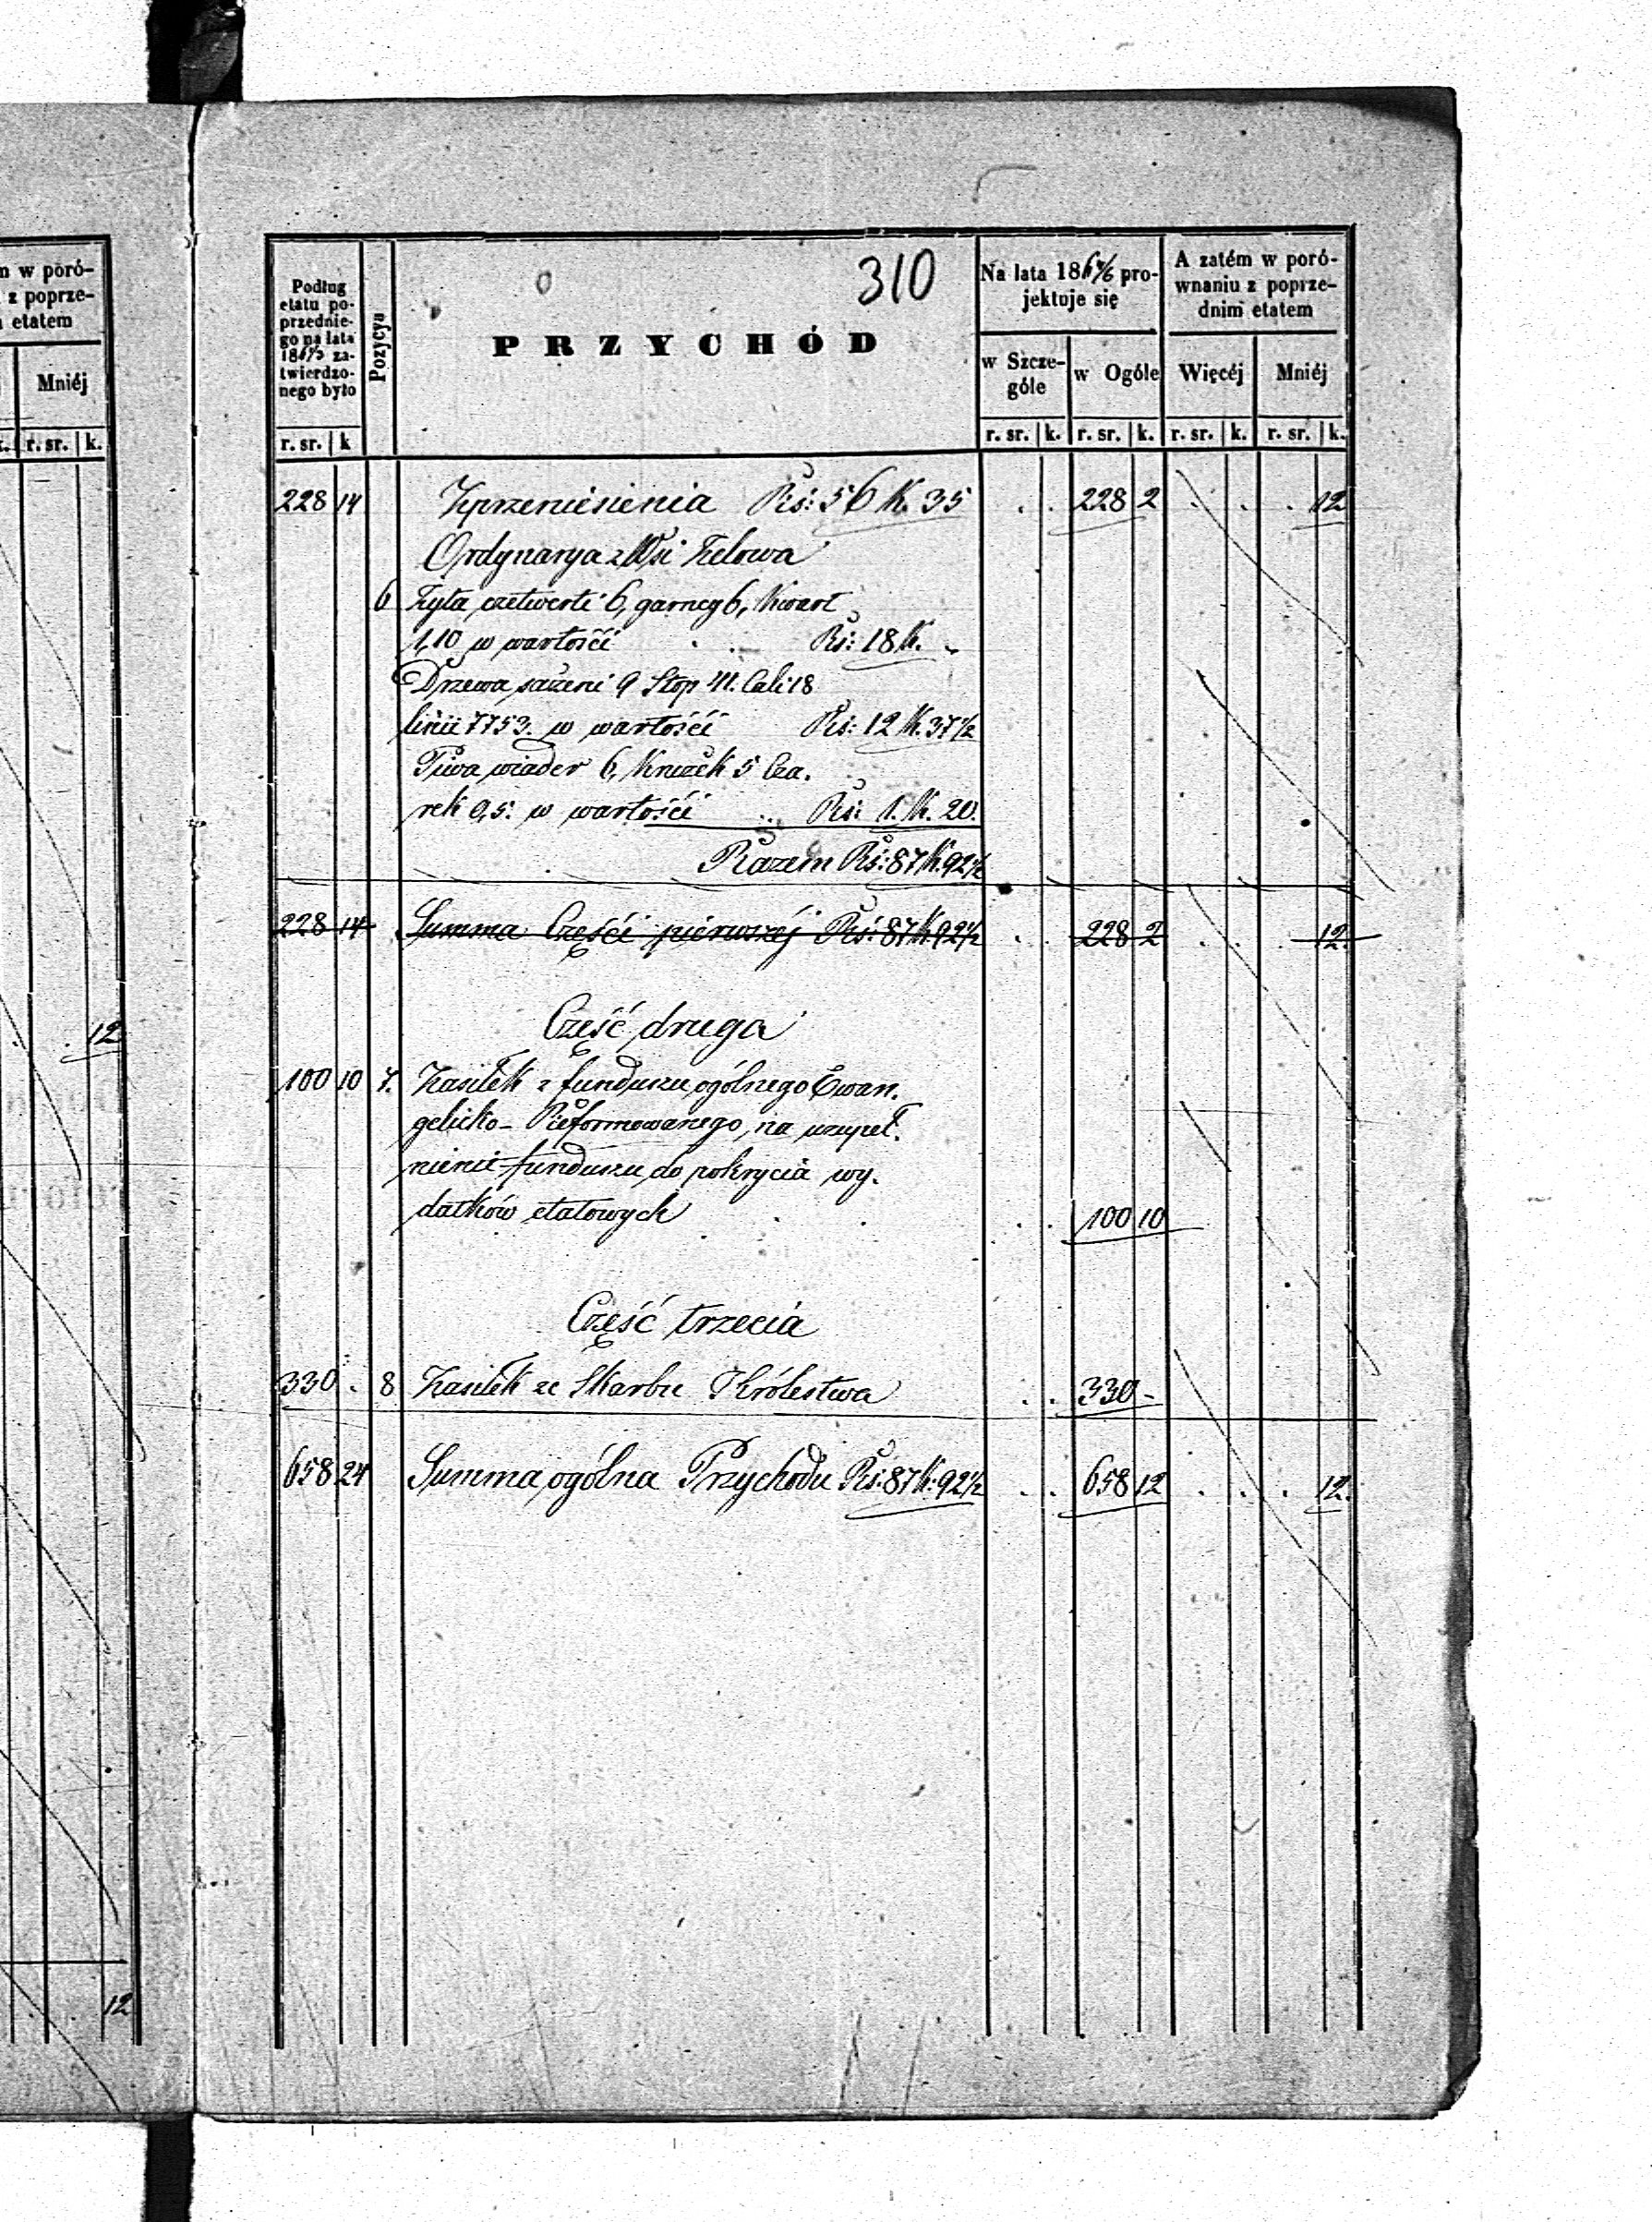 m w poró-
z poprze-
etatem
Mniéj
k. r. sr. k.
12
12
310
PRZYCHÓD
Podług
etatu po-
przednie-
go na lata
za-
twierdzo-
nego było
r. sr. k
Pozycya
Na lata 186 pro-
jektuje się
w Szcze-
góle
w Ogóle
r. sr. k. r. sr. k.
A zatém w poró-
wnaniu z poprze-
dnim etatem
Więcéj Mniéj
r. sr. k. r. sr. k.
228 14 Zprzeniesienia Rs: 56 K. 35 . . 228 2 . . . 12
Ordynarya z Wsi Zelowa
6 Żyta czetwerti 6, garncy 6, Kwart
1,10 w wartości . . Rs: 18 K. -
Drzewa sażeni 9 Stop 41. Cali 18
linii 7753. w wartości Rs: 12 K. 37 1/2
Piwa wiader 6, Krużek 5 Cza.
rek 0,5. w wartości .. Rs: 1. K. 20.
Razem Rs: 87 K. 92 1/2
228 14 Summa Części pierwszéj Rs: 87 K. 92 1/2 . . 228 2 . . . 12.
Część druga
100 10 7. Zasiłek z funduszu ogólnego Ewan.
gelicko- Reformowanego, na uzupeł.
nienie funduszu do pokrycia wy.
datków etatowych . . . . 100 10
Część trzecia
330 . 8 Zasiłek ze Skarbu Królestwa . . 330 -
658 24 Summa ogólna Przychodu Rs: 87 K: 92 1/2 . . 658 12 . . . 12.